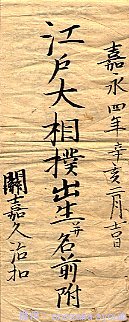 嘉永四年辛亥二月吉日
江戸大相撲出生并名前附
關嘉久治扣